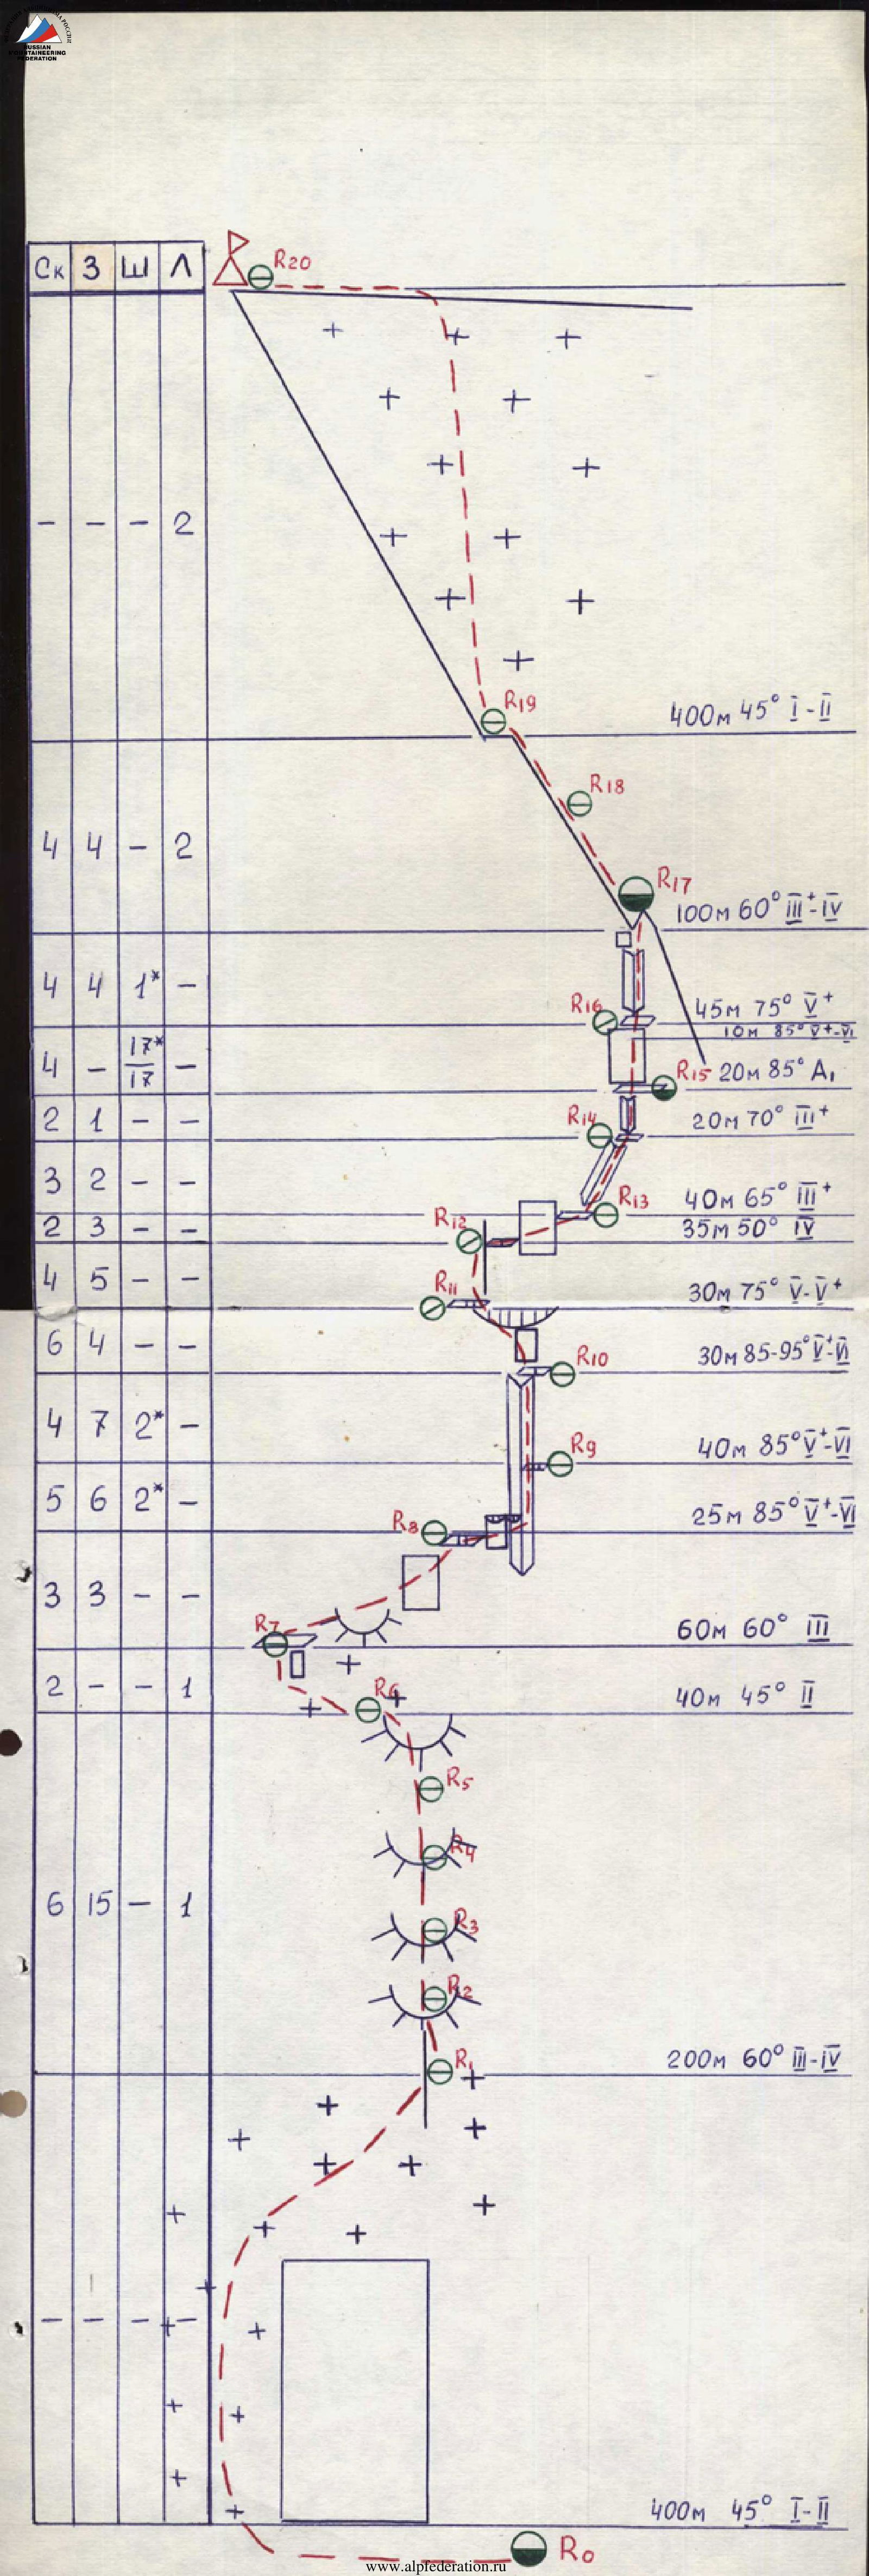 RUSSIAN
MOUNTAINEERING
FEDERATION
Ск З Ш Л
R20
- - - 2
R19
400м 45° I-II
R18
4 4 - 2
R17
100м 60° III⁺-IV
4 4 1* -
R16
45м 75° V⁺
10м 85° V⁺-VI
4 - 17*/17 -
R15 20м 85° A1
2 1 - -
R14
20м 70° III⁺
3 2 - -
R13
40м 65° III⁺
2 3 - -
R12
35м 50° IV
4 5 - -
R11
30м 75° V-V⁺
6 4 - -
R10
30м 85-95° V⁺-VI
4 7 2* -
R9
40м 85° V⁺-VI
5 6 2* -
R8
25м 85° V⁺-VI
3 3 - -
R7
60м 60° III
2 - - 1
R6
40м 45° II
R5
R4
6 15 - 1
R3
R2
R1
200м 60° III-IV
- - - -
400м 45° I-II
R0
www.alpfederation.ru